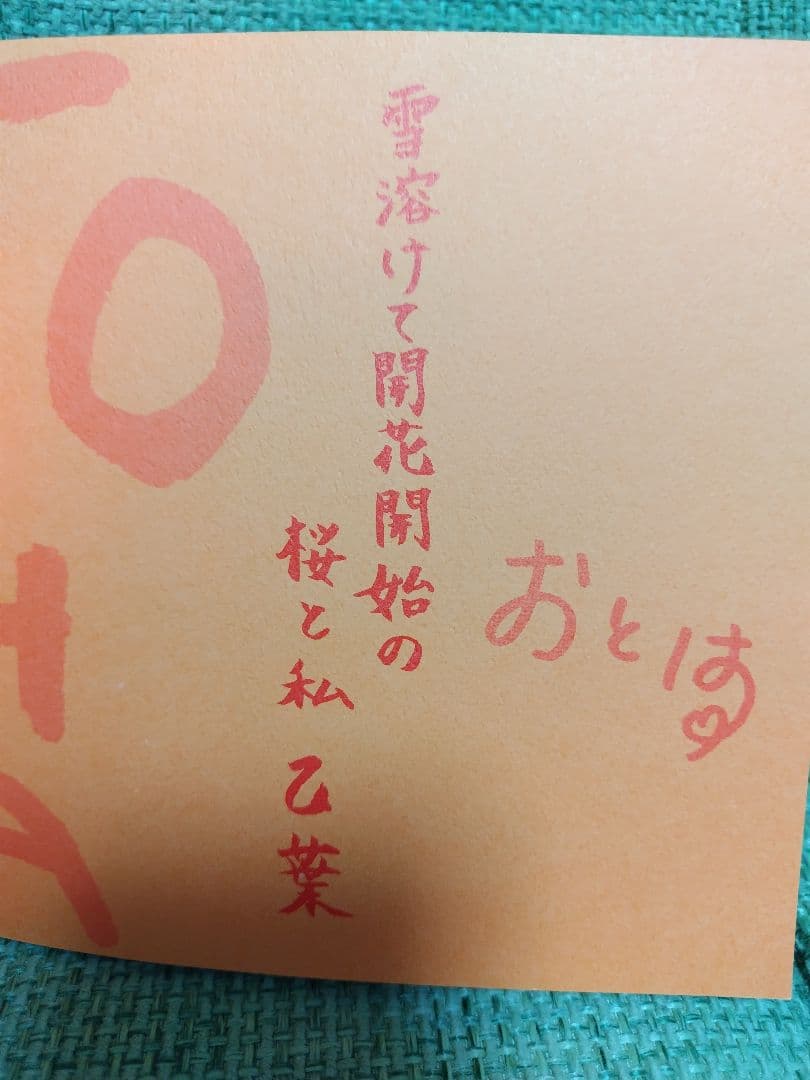 おとは
雪溶けて開花開始の
桜と私 乙葉
OHA